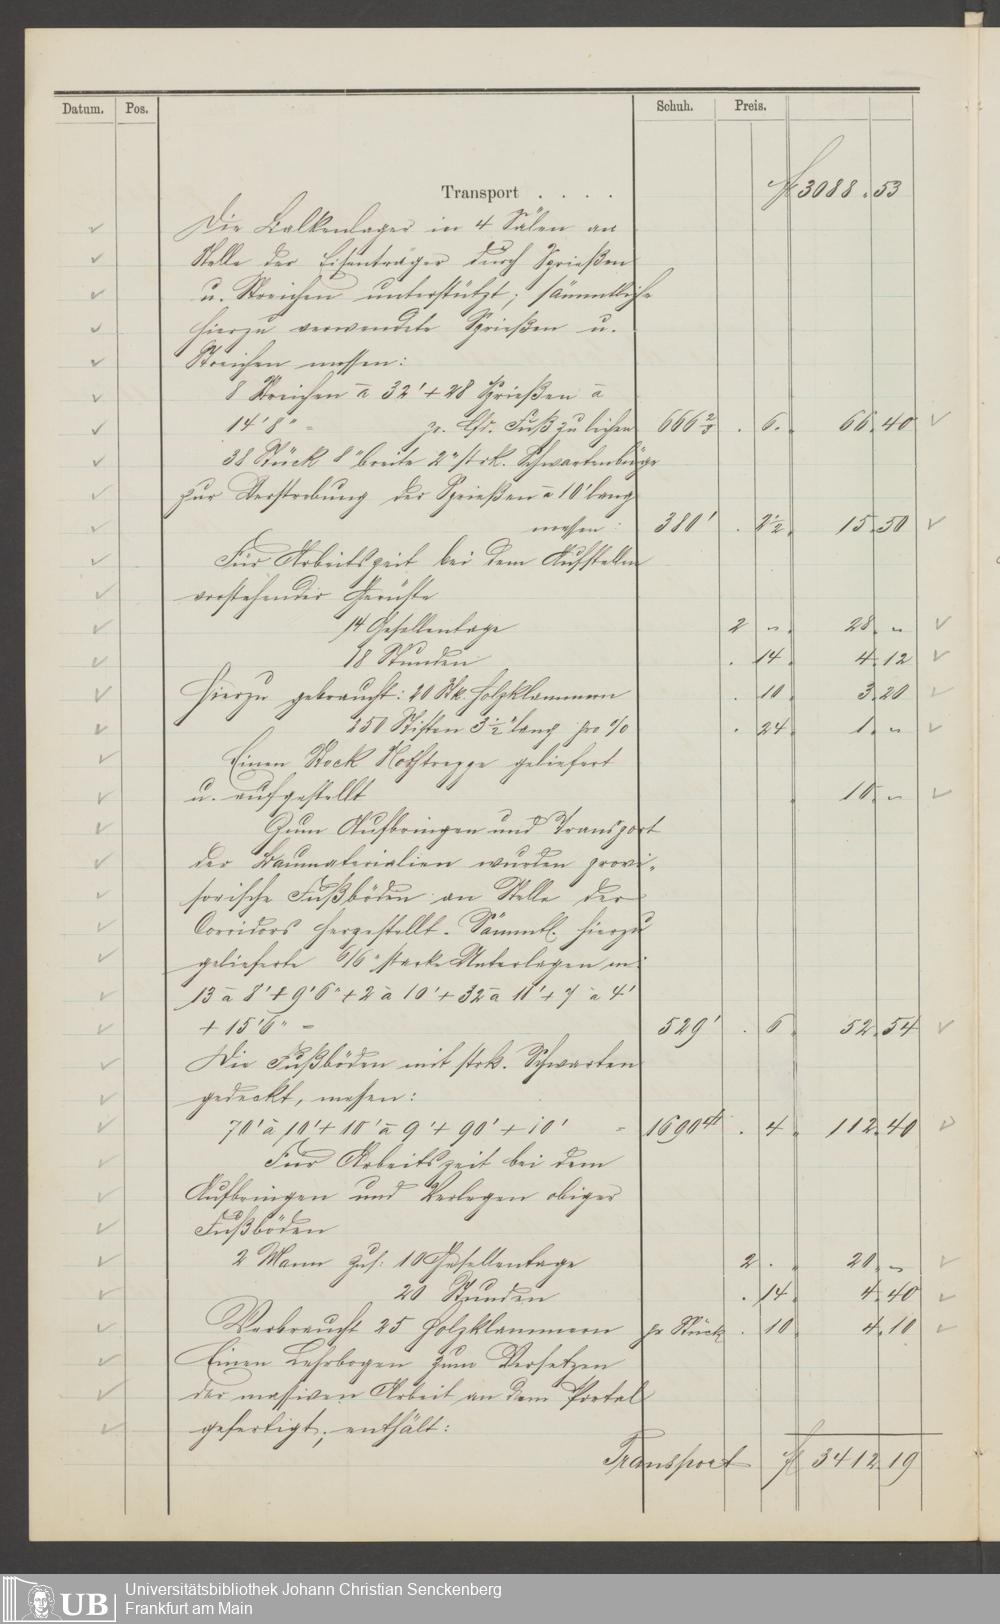 Datum. Pos. Schuh. Preis.
Transport . . . . fl 3088 . 53
Die Balkenlager in 4 Sälen an
Stelle der Eisenträger durch Sprießen
u. Streichen unterstützt; sämmtliche
hierzu verwendete Sprießen u.
Streichen messen:
8 Streichen à 32' + 28 Sprießen à
14' 8" = pr. lfd. Fuß zu leihen 666 2/3 . 6. 66. 40
38 Stück 8" breite 2" strk. Schwartenbüge
zur Verstrebung der Sprießen à 10' lang
messen: 380' . 2½. 15. 50
Für Arbeitszeit bei dem Aufstellen
vorstehender Gerüste
14 Gesellentage 2 „ . 28. „
18 Stunden . 14 . 4. 12
Hierzu gebraucht: 20 Stk. Holzklammern . 10 . 3. 20
250 Stiften 3½" lang pro % . 24 . 1. „
Einen Stock Nothtreppe geliefert
u. aufgestellt . 10. „
Zum Aufbringen und Transport
der Baumaterialien wurden provi-
sorische Fußböden an Stelle der
Corridors hergestellt. Sämmtl. hierzu
gelieferte 6/6" starke Unterlagen m:
13 à 8' + 9' 6" + 2 à 10' + 32 à 11' + 7 à 4'
+ 15' 6" = 529' . 6 . 52. 54
Die Fußböden mit strk. Schwarten
gedeckt, messen:
70' à 10' + 10' à 9' + 90' + 10' = 1690 . 4 . 112. 40
Für Arbeitszeit bei dem
Aufbringen und Verlegen obiger
Fußböden
2 Mann zus: 10 Gesellentage 2 . . 20. „
20 Stunden . 14 . 4. 40
Verbraucht 25 Holzklammern pr Stück . 10 . 4. 10
Einen Lehrbogen zum Versetzen
der massiven Arbeit an dem Portal
gefertigt, enthält:
Transport fl 3412. 19
UB Universitätsbibliothek Johann Christian Senckenberg
Frankfurt am Main